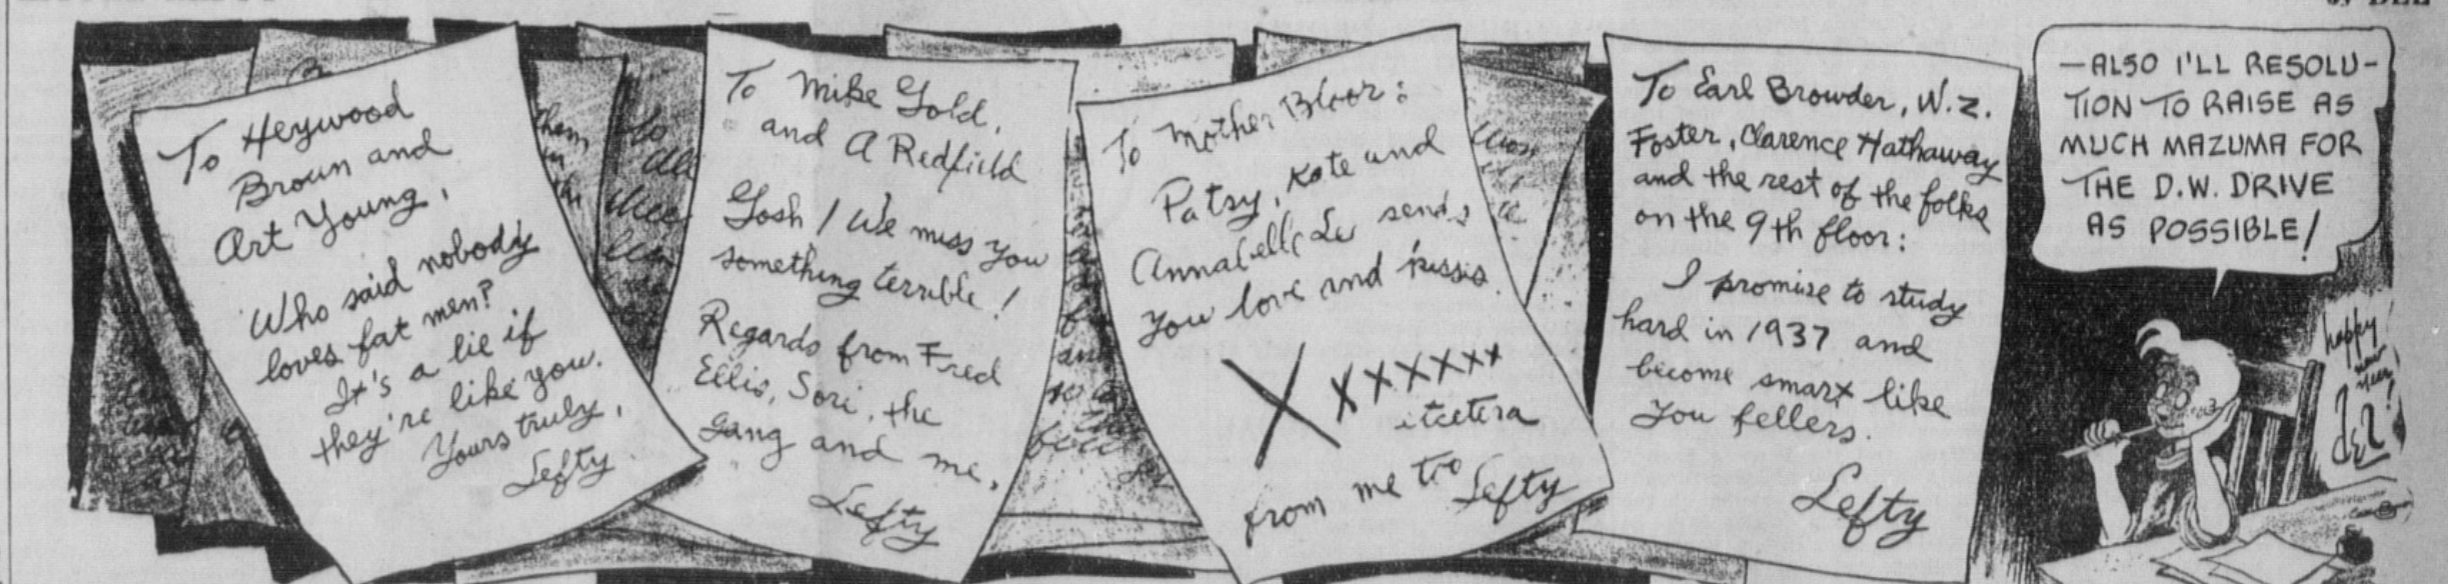 by DEL
To Heywood
Broun and
Art Young,
Who said nobody
loves fat men?
It's a lie if
they're like you.
Yours truly,
Lefty
To Mike Gold,
and A Redfield
Gosh! We miss you
something terrible!
Regards from Fred
Ellis, Sori, the
gang and me,
Lefty
To Mother Bloor:
Patsy, Kate and
Annabelle Lu sends
you love and kissis.
X XXXXXXX
itcetira
from me too Lefty
To Earl Browder, W.Z.
Foster, Clarence Hathaway
and the rest of the folks
on the 9th floor:
I promise to study
hard in 1937 and
become smart like
you fellers.
Lefty
—ALSO I'LL RESOLU-
TION TO RAISE AS
MUCH MAZUMA FOR
THE D.W. DRIVE
AS POSSIBLE!
happy
new
year!
del